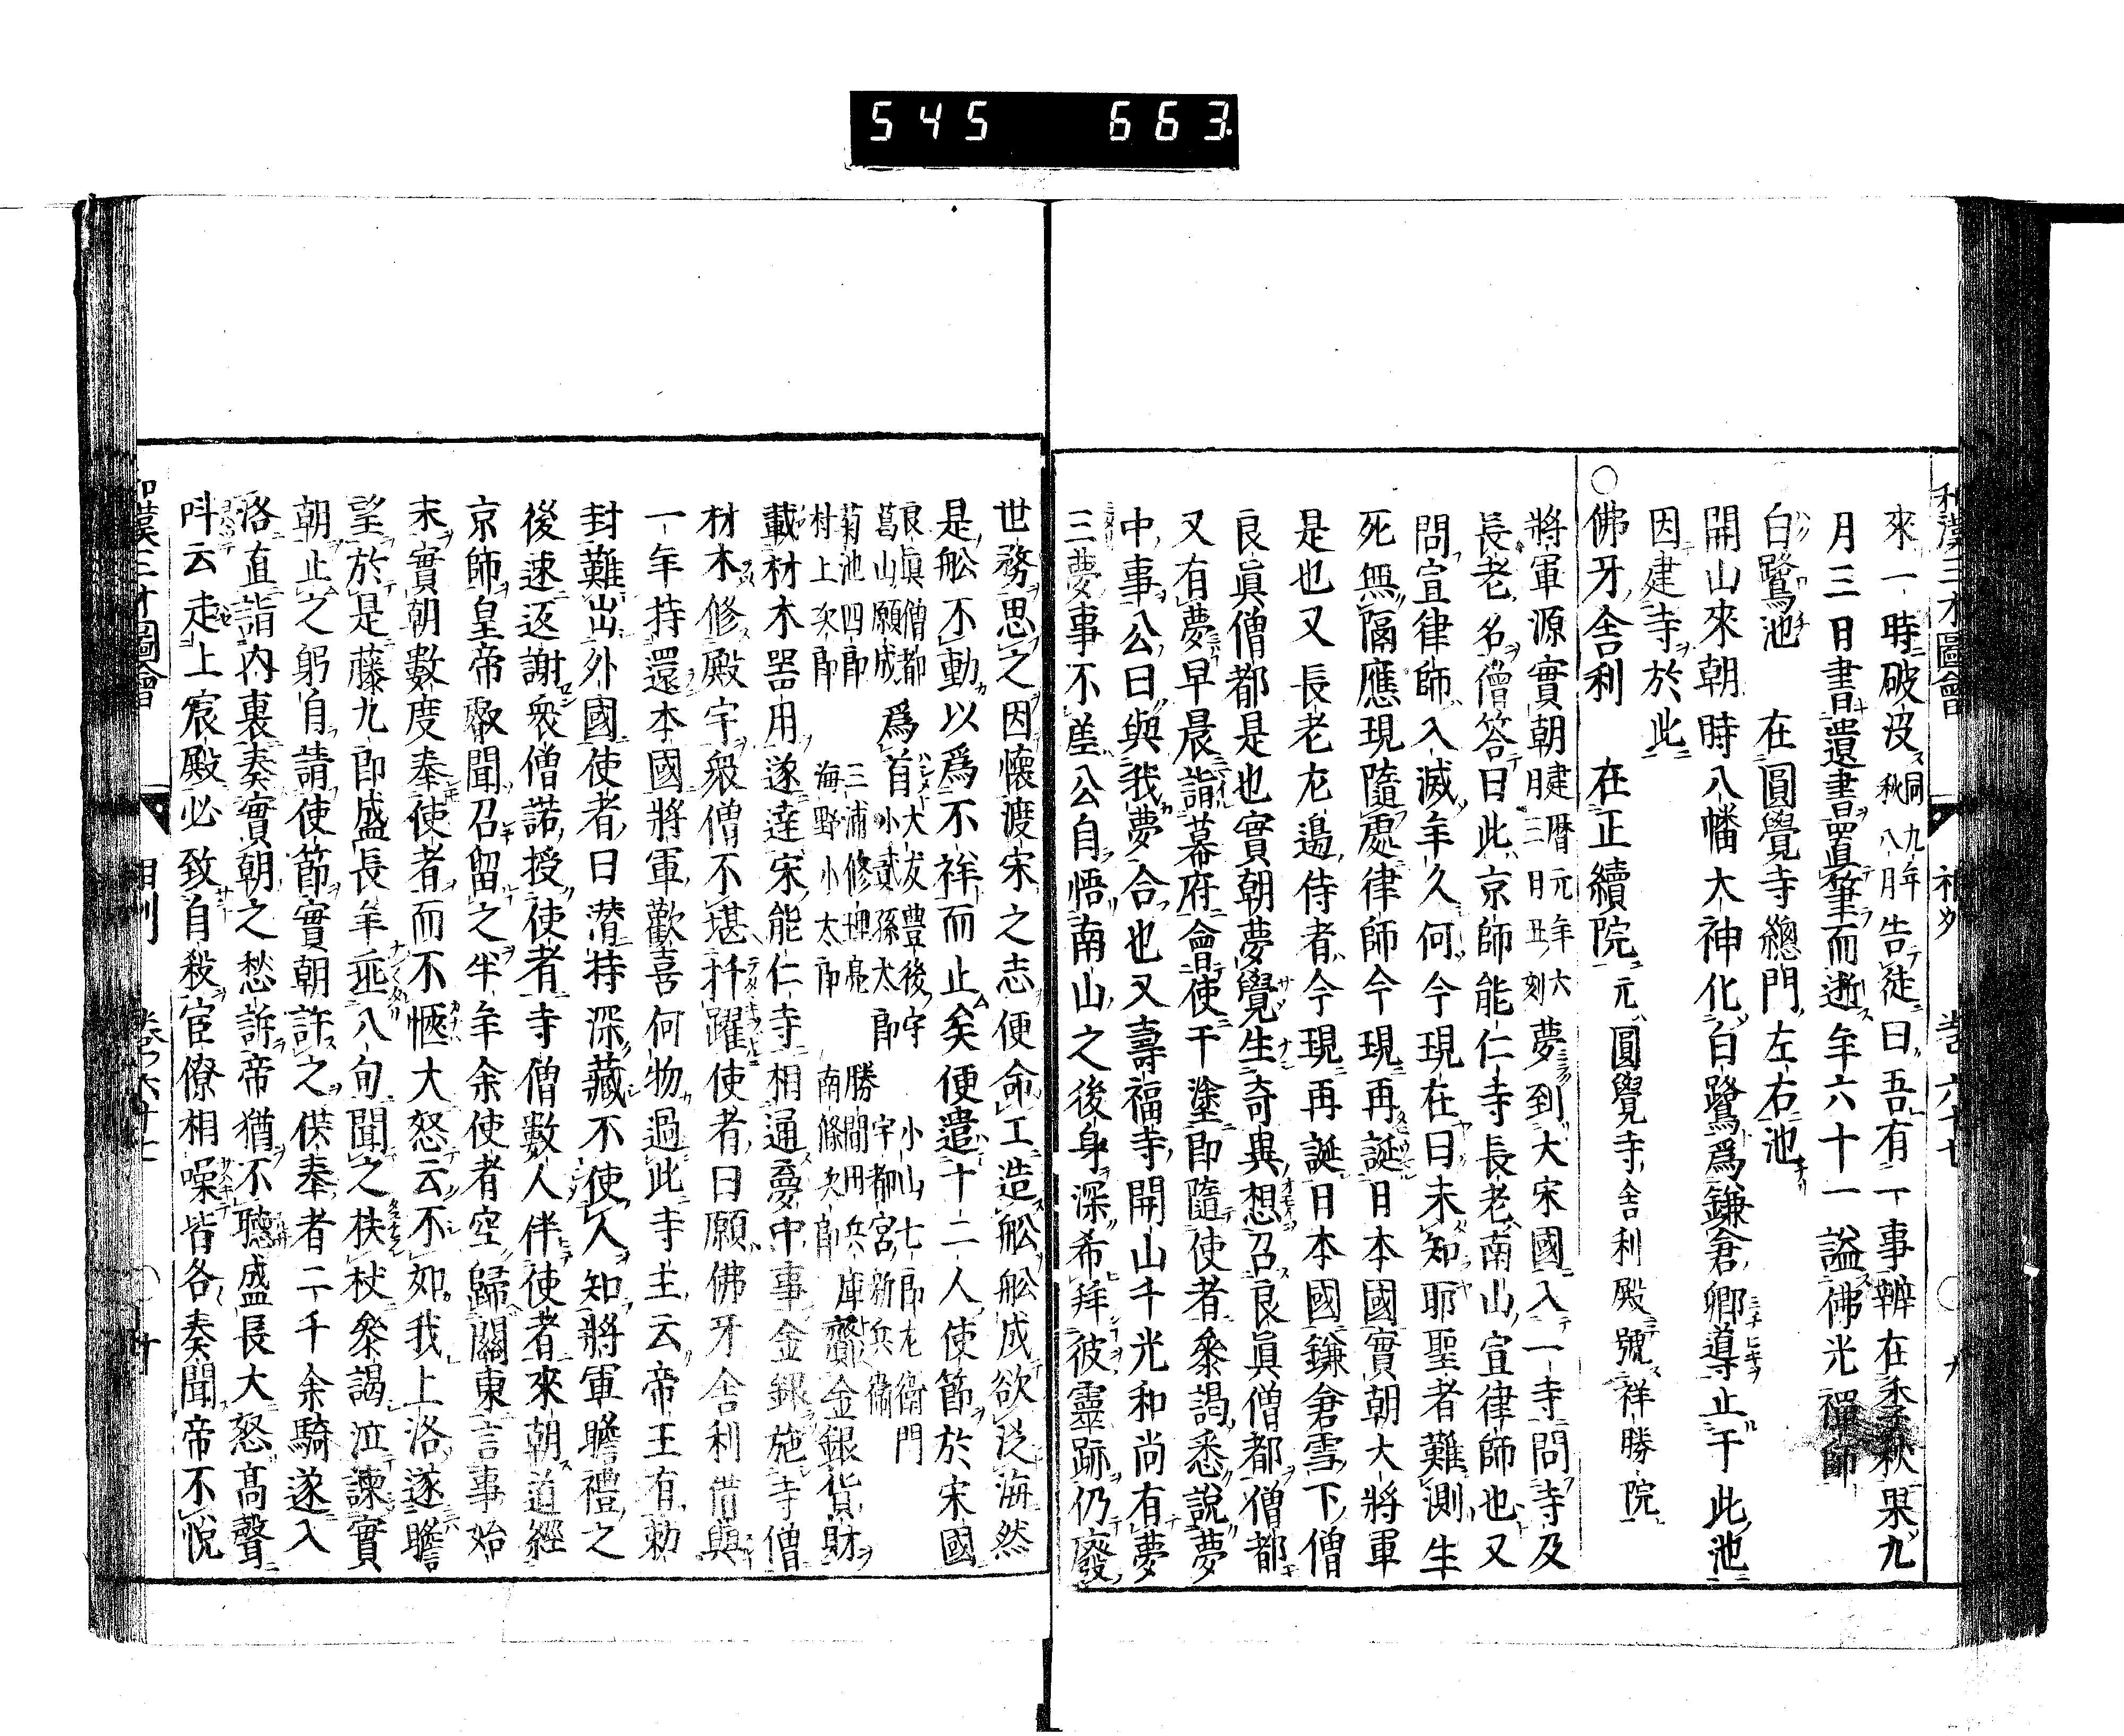 545 663
和漢三才圖會 相州 卷六十七 ○九
來一時破没 洞九年秋八月 告徒曰吾有一事辨在季秋果九
月三日書遺書置筆而逝年六十一謚佛光禪師
白鷺池 在圓覺寺總門左右池
開山來朝時八幡大神化白鷺爲鎌倉郷導止于此池
因建寺於此
○佛牙舍利 在正續院 元圓覺寺舍利殿號祥勝院
將軍源實朝 建暦元年六月三日丑刻 夢到大宋國入一寺問寺及
長老名僧答曰此京師能仁寺長老南山宣律師也又
問宣律師入滅年久何今現在曰未知耶聖者難測生
死無隔應現隨處律師今現再誕日本國實朝大將軍
是也又長老左邉侍者今現再誕日本國鎌倉雪下僧
良眞僧都是也實朝夢覺生奇異想召良眞僧都僧都
又有夢早晨詣幕府會使于塗即隨使者參謁悉説夢
中事公曰與我夢合也又壽福寺開山千光和尚有夢
三夢事不差公自悟南山之後身深希拜彼靈跡仍廢
世務思之因懷渡宋之志便命工造舩舩成欲泛海然
是舩不動以爲不祥而止矣便遣十二人使節於宋國
良眞僧都 葛山願成 爲首 大友豊後守 小貳孫太郎 小山七郎左衞門 宇都宮新兵衞
菊池四郎 村上次郎 三浦修理亮 海野小太郎 勝間田兵庫 南條次郎 齎金銀貨財
載材木器用遂達宋能仁寺相通夢中事金銀施寺僧
材木修殿宇衆僧不堪抃躍使者曰願佛牙舍利借與
一年持還本國將軍歡喜何物過此寺主云帝王有勅
封難出外國使者曰潜持深藏不使人知將軍瞻禮之
後速返謝衆僧諾授使者寺僧數人伴使者來朝道經
京師皇帝聞召留之半年余使者空歸關東言事始
末實朝數度奉使者而不愜大怒云不如我上洛遂瞻
望於是藤九郎盛長年垂八旬聞之扶杖參謁泣諫實
朝止之躬自請使節實朝許之供奉者二千余騎遂入
洛直詣内裏奏實朝之愁訴帝猶不聽盛長大怒高聲
呌云走上宸殿必致自殺宦僚相噪皆各奏聞帝不悦
和漢三才圖會 相州 卷六十七 ○十